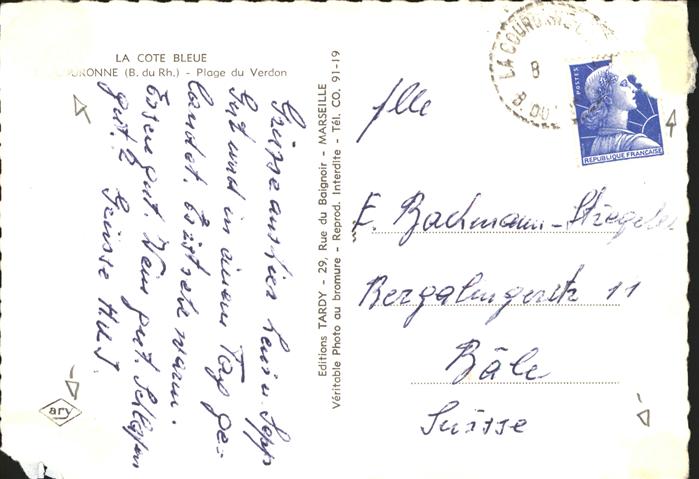 LA COTE BLEUE
COURONNE (B. du Rh.) - Plage du Verdon
Grüsse aus hier
Gut und in einem Tag ge-
landet. Es ist sehr warm.
Essen gut. Wein gut. Schlafen
gut. Grüsse
ary
Editions TARDY - 29, Rue du Baignoir - MARSEILLE
Véritable Photo au bromure - Reprod. Interdite - Tél. CO. 91-19
LA COURONNE
8
POSTES
REPUBLIQUE FRANÇAISE
E. Bachmann-
11
Bâle
Suisse